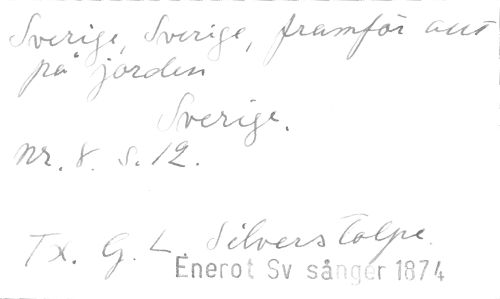 Sverige, Sverige, framför allt
på jorden
Sverige.
Nr. 8. s. 12.
Tx. G. L. Silverstolpe.
Enerot Sv sånger 1874